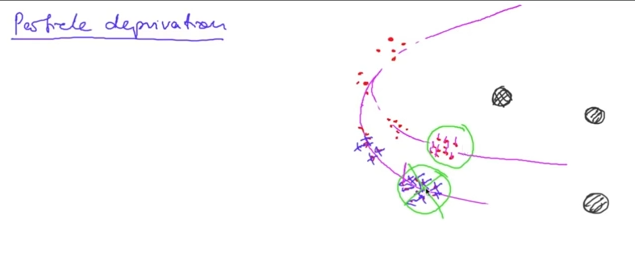 Particle deprivation